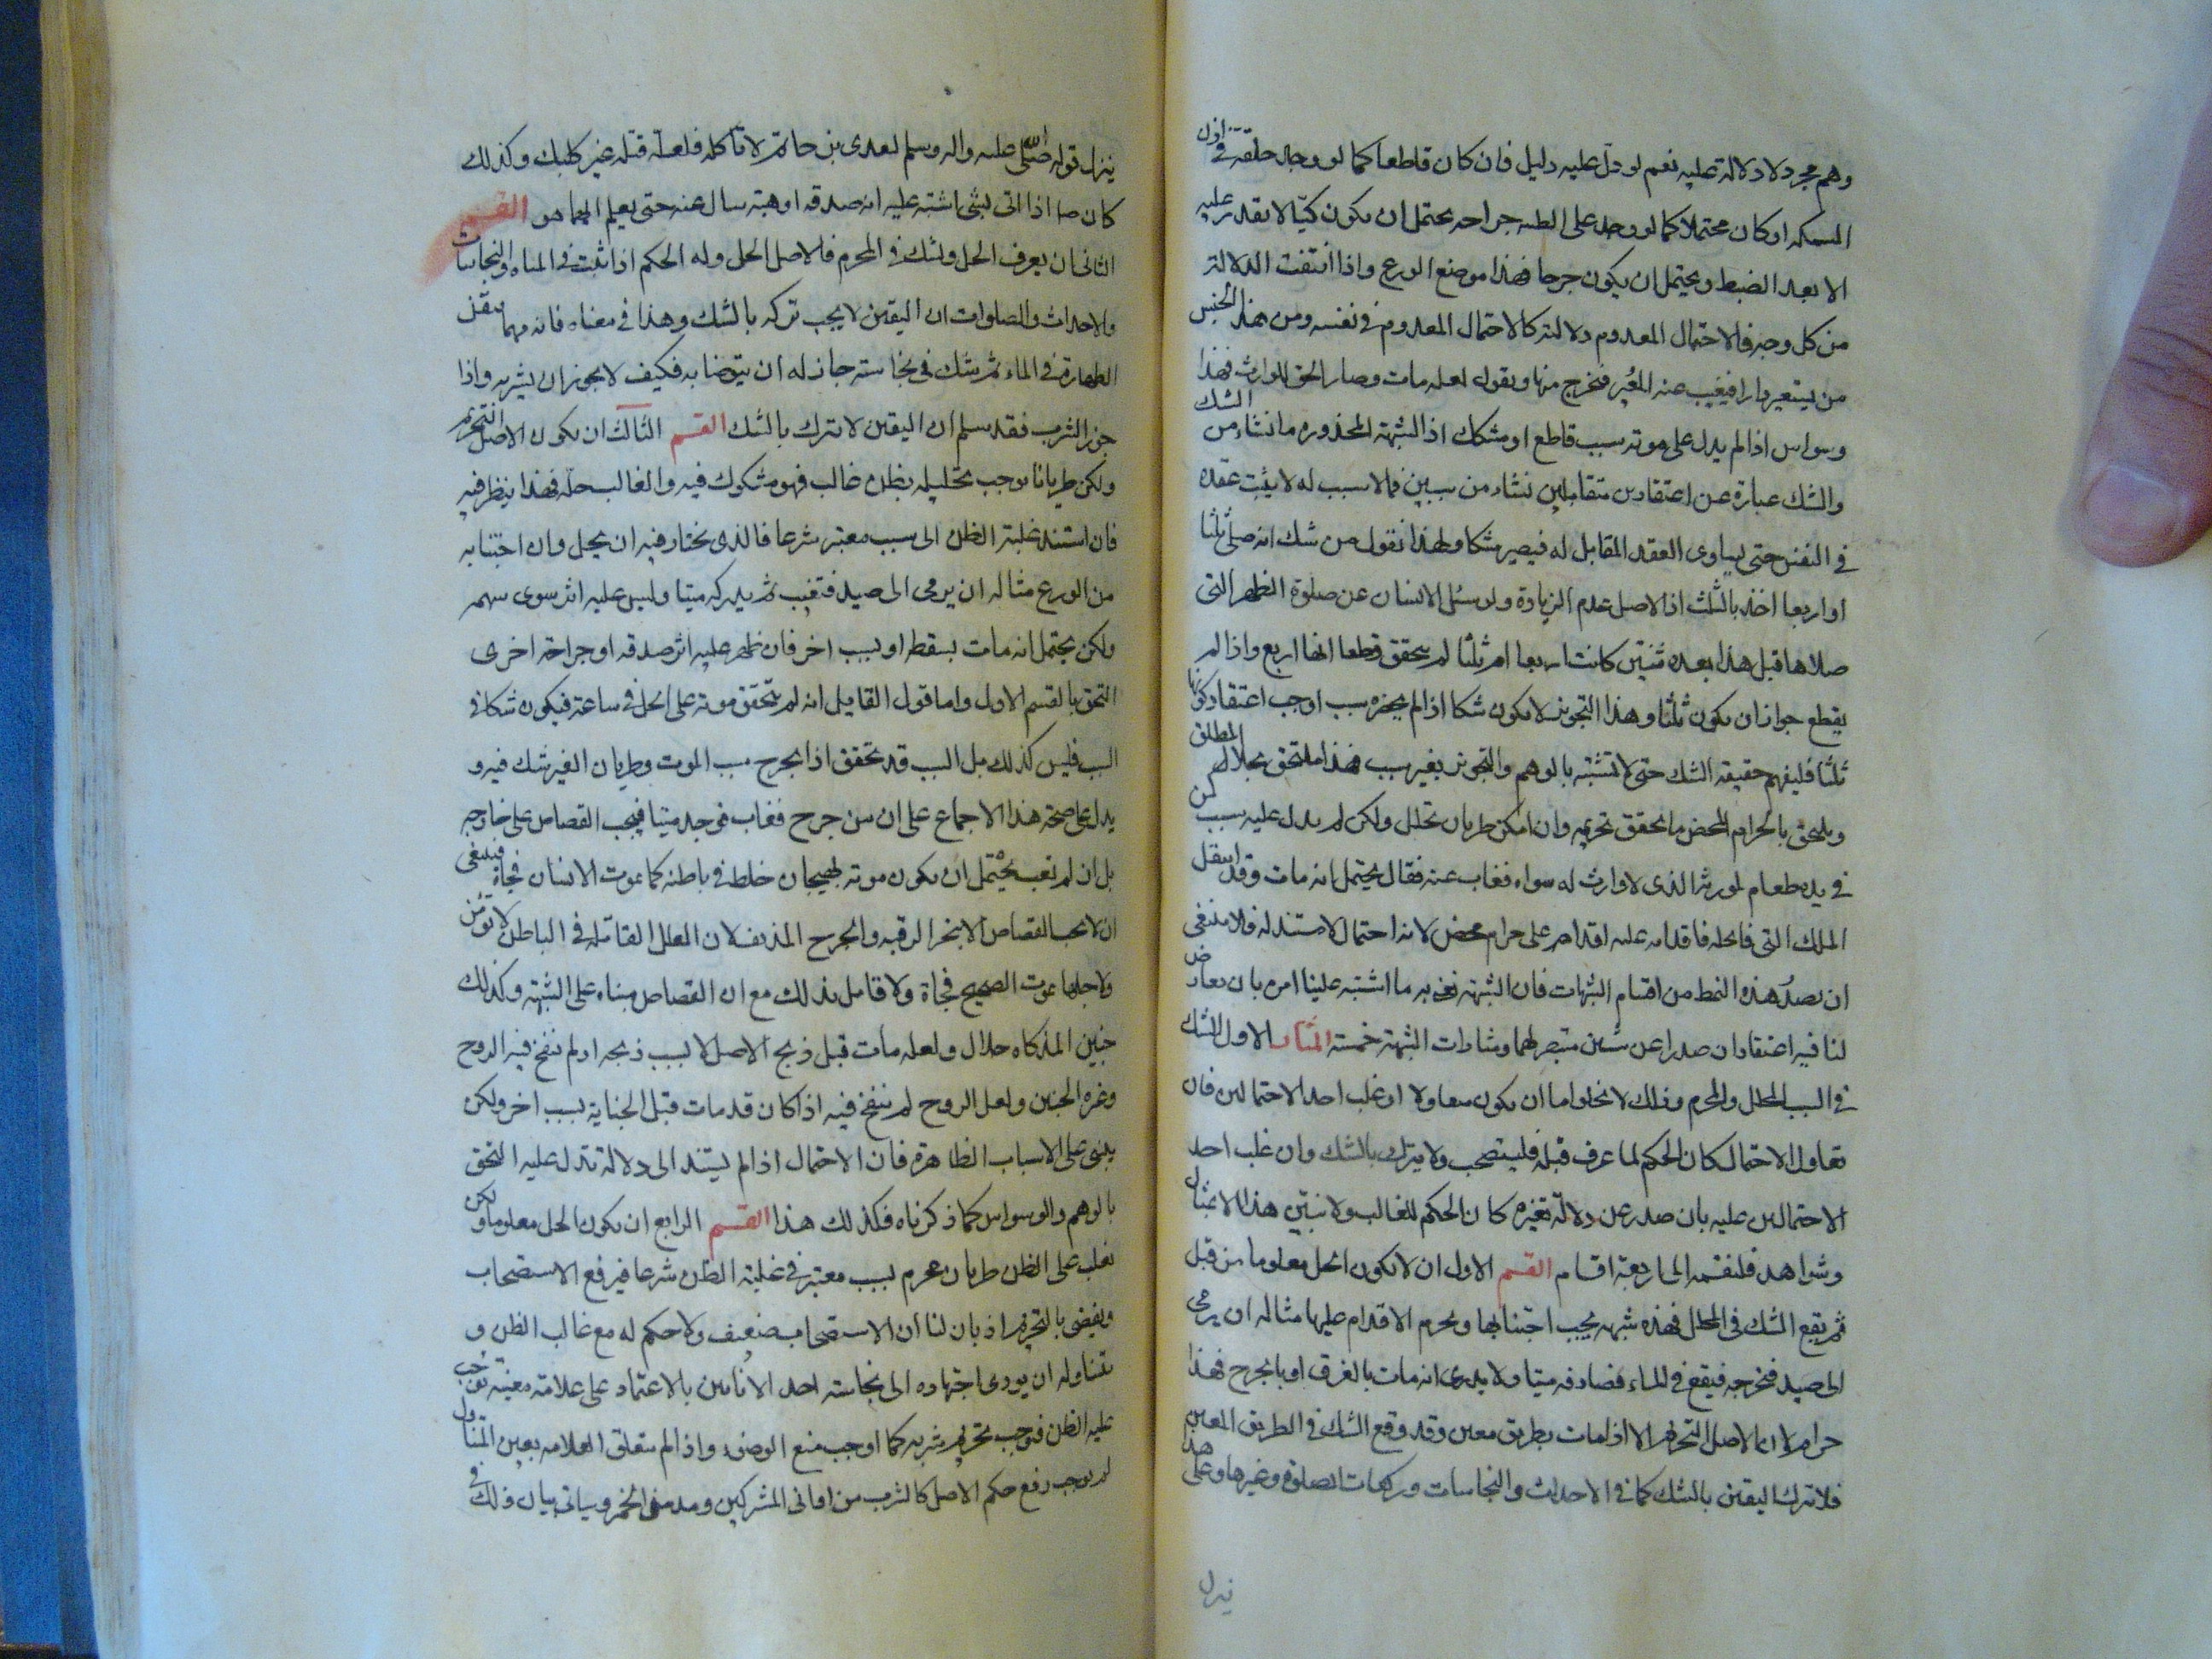 وهم مجرد لا دلالة عليه نعم لو دل عليه دليل فان كان قاطعا كما لو وجد حلقة في اذن
السمكه او كان محتملا كما لو وجد على الطبيه جراحه يحتمل ان يكون كيّا لا يقدر عليه
الا بعد الضبط ويحتمل ان يكون جرحا فهذا موضع الورع واذا انتفت الدلالة
من كل وجه فالاحتمال المعدوم دلالته كالاحتمال المعدوم في نفسه ومن هذا الجنس
من يستعير دارا فيغيب عنه المعير فخرج منها ويقول لعله مات وصار الحق للوارث فهذا
وسواس اذا لم يدل على موته سبب قاطع او مشكك اذ الشبهة المحذوره ما نشاء من الشك
والشك عبارة عن اعتقادين متقابلين نشاء من سببين فما لا سبب له لا يثبت عقده
في النفس حتى يساوى العقد المقابل له فيصير شكا ولهذا نقول من شك انه صلى ثلثا
او اربعا اخذ بالثلث اذ الاصل عدم الزيادة ولو سئل الانسان عن صلوة الظهر التى
صلاها قبل هذا بعده سنين كانت اربعا ام ثلثا لم يتحقق قطعا انها اربع واذا لم
يقطع جواز ان يكون ثلثا وهذا التجويز لا يكون شكا اذا لم يحضره سبب اوجب اعتقاد كونها
ثلثا فليفهم حقيقة الشك حتى لا تشتبه بالوهم والتجويز بغير سبب فهذا ملتحق بحلال المطلق
ويلحق بالحرام المحض ما تحقق تحريمه وان امكن طريان تحلل ولكن لم يدل عليه سبب كمن
في يده طعام لمورثه الذى لا وارث له سواه فغاب عنه فقال يحتمل انه مات وقد انتقل
الملك التى فاكله فاقدامه عليه اقدام على حرام محض لانه احتمال لا مستند له فلا ينبغي
ان يعد هذه النمط من اقسام الشبهات فان الشبهة نعني به ما اشتبه علينا امره بان تعارض
لنا فيه اعتقادان صدرا عن سببين مقتضيين لهما ومثارات الشبهة خمسة المثار الاول الشك
في السبب المحلل والمحرم وذلك لا يخلو اما ان يكون متعادلا او غلب احد الاحتمالين فان
تعادل الاحتمال كان الحكم لما عرف قبله فليستصحب ولا يترك بالشك وان غلب احد
الاحتمالين عليه بان صدر عن دلالة معتبرة كان الحكم للغالب ولا نبين هذا الا بامثال
وشواهد فلنقسمه الى اربعة اقسام القسم الاول ان لا يكون الحل معلوما من قبل
ثم يقع الشك في المحلل فهذه شبهه يجب اجتنابها ويحرم الاقدام عليها مثاله ان يرمى
الى صيد فخرجه فيقع في الماء فصادفه ميتا ولا يدرى انه مات بالغرق او بالجرح فهذا
حرام لان الاصل التحريم الا اذا مات بطريق معين وقد وقع الشك في الطريق المعين
فلا يترك اليقين بالشك كما في الاحداث والنجاسات وركعات الصلوة وغيرها وعلى هذا
نيزل
ينزل قوله صلى الله عليه واله وسلم لعدى بن حاتم لا تاكله فلعله قتله غير كلبك وكذلك
كان صا اذا اتى بشى اشتبه عليه انه صدقه او هبة سال عنه حتى يعلم ايهما هو القسم
الثانى ان يعرف الحل وشك في المحرم فالاصل الحل وله الحكم اذا ثبت في المياه والنجاسات
والاحداث والصلوات ان اليقين لا يجب تركه بالشك وهذا في معناه فانه مهما تيقن
الطهارة في الماء ثم شك في نجاسته جاز له ان يتوضا به فكيف لا يجوز ان يشربه واذا
جوز الشرب فقد سلم ان اليقين لا يترك بالشك القسم الثالث ان يكون الاصل التحريم
ولكن طريانا يوجب تحليله بظن غالب فهو مشكوك فيه والغالب حله فهذا ينظر فيه
فان استند غلبة الظن الى سبب معتبر شرعا فالذى نختار فيه ان يحل وان اجتنابه
من الورع مثاله ان يرمى الى صيد فتغيب ثم يدركه ميتا وليس عليه اثر سوى سهمه
ولكن يحتمل انه مات بسقطه او بسبب اخر فان ظهر عليه اثر صدقه او جراحة اخرى
التحق بالقسم الاول واما قول القايل انه لم يتحقق موته على الحل في ساعة فيكون شكا في
السبب فليس كذلك بل السبب قد تحقق اذا الجرح سبب الموت وطريان الغير شك فيه و
يدل على صحة هذا الاجماع على ان من جرح فغاب فوجد ميتا فيجب القصاص على جارحه
بل ان لم تغب يحتمل ان يكون موته بهيجان خلط في باطنه كما يموت الانسان فجاة فينبغي
ان لا يجب القصاص الا بنحر الرقبه والجرح المذفف لان العلل القاتله في الباطن لا تؤمن
ولاجلها يموت الصحيح فجاة ولا قايل بذلك مع ان القصاص مبناه على الشبهة وكذلك
جنين المذكاه حلال ولعله مات قبل ذبح الاصل لا بسبب ذبحه او لم ننفخ فيه الروح
وغره الجنين ولعل الروح لم ننفخ فيه اذا كان قد مات قبل الجناية بسبب اخر ولكن
يبنى على الاسباب الظاهرة فان الاحتمال اذا لم يستند الى دلالة تدل عليه التحق
بالوهم والوسواس كما ذكرناه فكذلك هذا القسم الرابع ان يكون الحل معلوما ولكن
يغلب على الظن طريان محرم بسبب معتبر في غلبة الظن شرعا فيرفع الاستصحاب
ويفضى بالتحريم اذ بان لنا ان الاستصحاب ضعيف ولا حكم له مع غالب الظن و
تناوله ان يودى اجتهاده الى نجاسة احد الانائين بالاعتماد على علامة معينة توجب
غلبة الظن فتوجب تحريم شربه كما اوجب منع الوضوء واذا لم يتعلق العلامه بعين المتناول
لم يوجب رفع حكم الاصل كالشرب من اوانى المشركين ومدمنى الخمر وسياتى بيان ذلك في